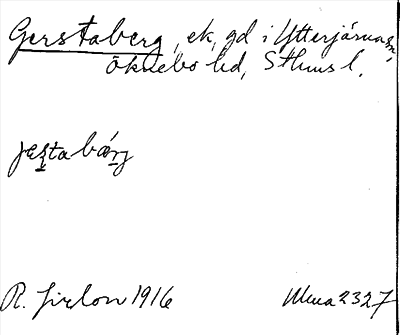 Gerstaberg, ek, gd i Ytterjärna sn,
Öknebo hd, Sthms l.
jæṣta bærj
R. 1916
Ulma 2327